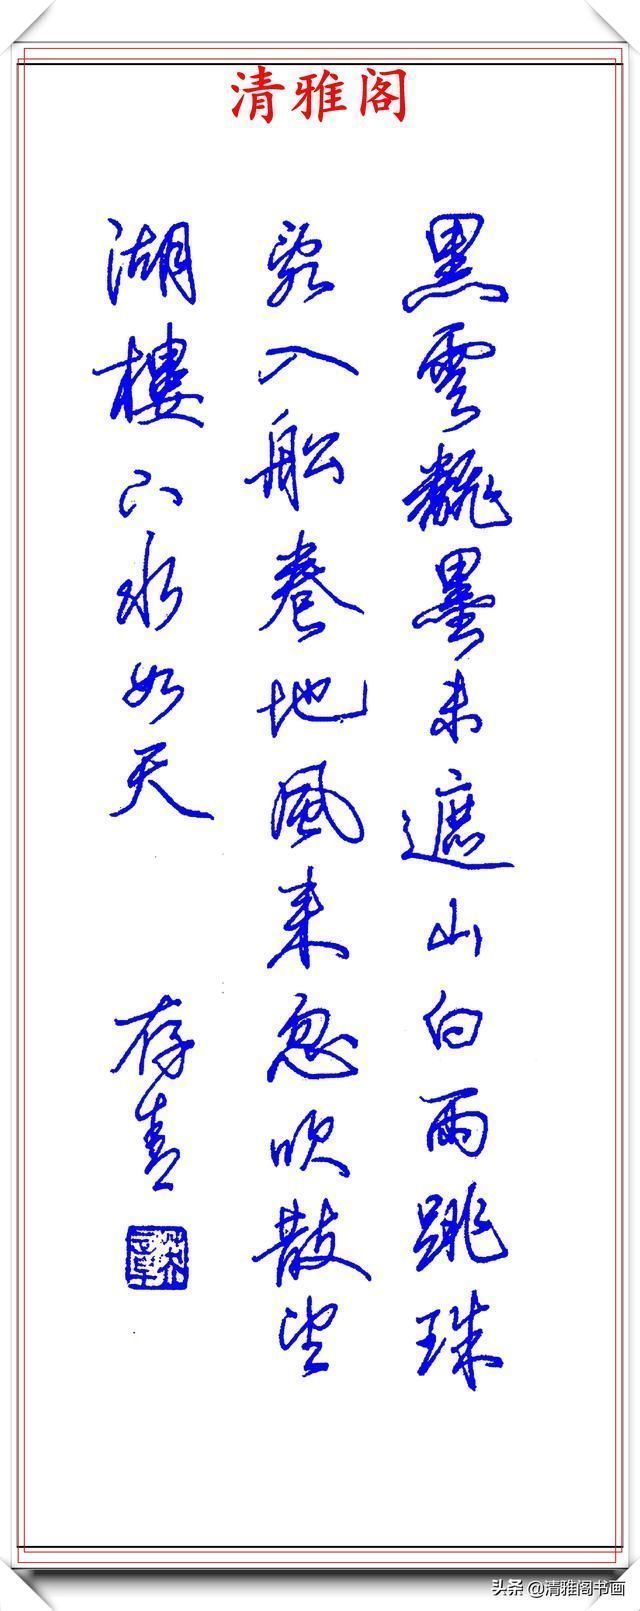 清雅阁
黑雲飜墨未遮山白雨跳珠
亂入船卷地風来忽吹散望
湖樓下水如天
存青
头条 @清雅阁书画